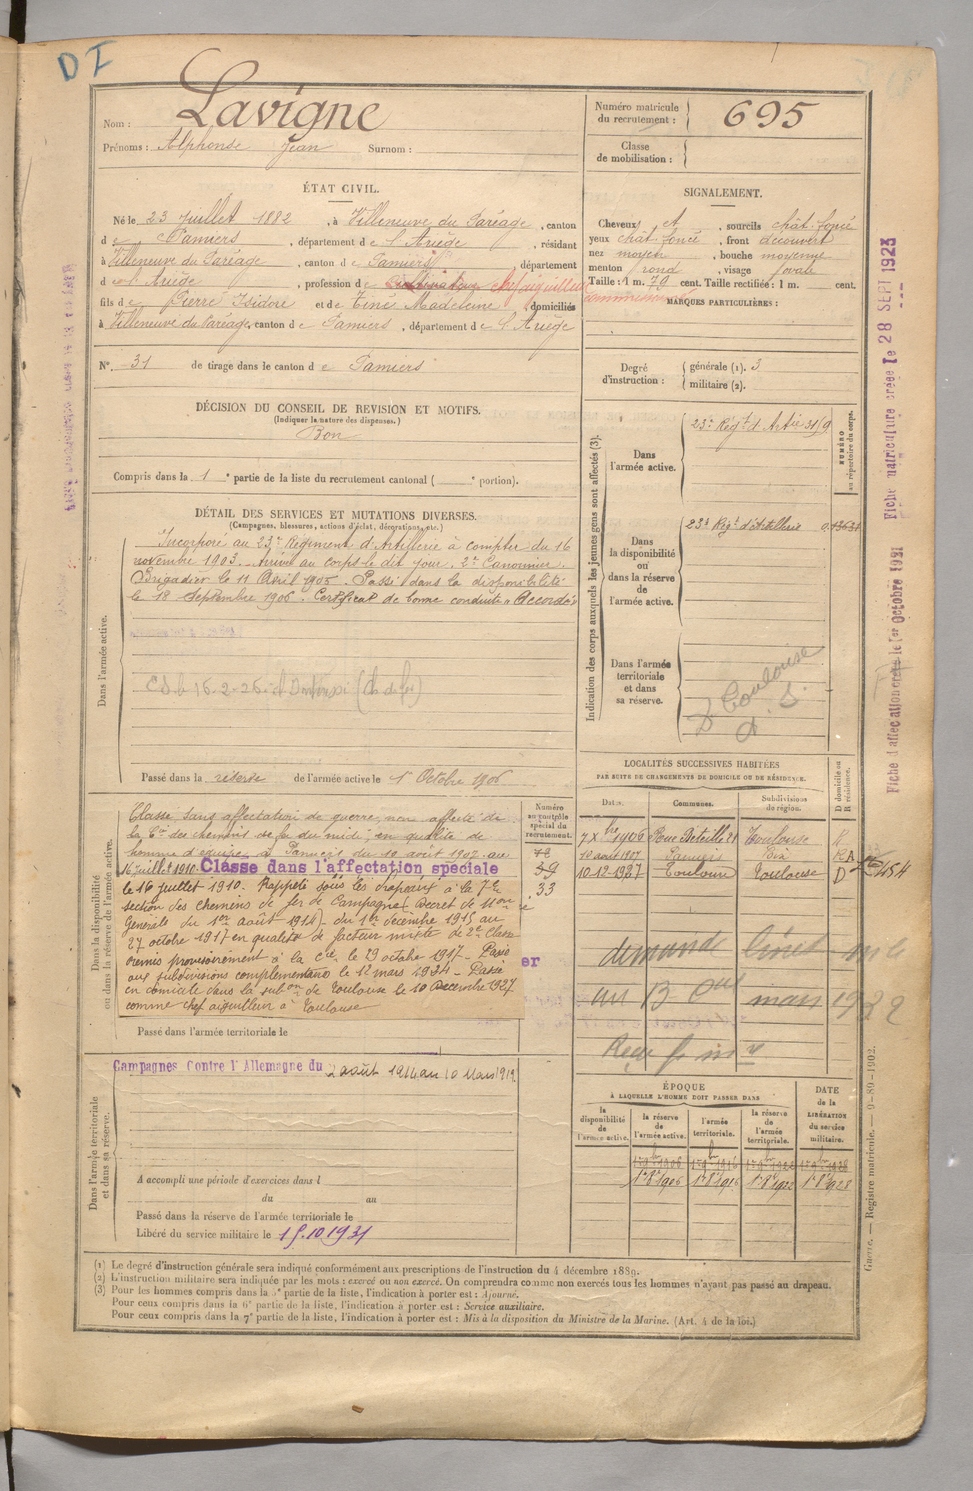 D I
Nom : Lavigne
Prénoms : Alphonse Jean Surnom :
Numéro matricule du recrutement : 695
Classe de mobilisation :
ÉTAT CIVIL.
Né le 23 Juillet 1882, à Villeneuve du Paréage, canton
de Pamiers, département de l'Ariège, résidant
à Villeneuve du Paréage, canton de Pamiers, département
de l'Ariège, profession de
fils de Pierre Isidore et de Tiné Madeleine domiciliés
à Villeneuve du Paréage, canton de Pamiers, département de l'Ariège
N° 31 de tirage dans le canton de Pamiers
SIGNALEMENT.
Cheveux et, sourcils chât. foncé
yeux chât. foncé, front découvert
nez moyen, bouche moyenne
menton rond, visage ovale
Taille : 1 m. 79 cent. Taille rectifiée : 1 m. cent.
MARQUES PARTICULIÈRES :
Degré d'instruction : générale (1). 3
militaire (2).
DÉCISION DU CONSEIL DE REVISION ET MOTIFS.
(Indiquer la nature des dispenses.)
Bon
Compris dans la 1e partie de la liste du recrutement cantonal ( e portion).
DÉTAIL DES SERVICES ET MUTATIONS DIVERSES.
(Campagnes, blessures, actions d'éclat, décorations, etc.)
Dans l'armée active.
Incorporé au 23e Régiment d'Artillerie à compter du 16
novembre 1903. Arrivé au corps le dit jour, 2e Canonnier.
Brigadier le 11 Avril 1905. Passé dans la disponibilité
le 18 Septembre 1906. Certificat de bonne conduite "Accordé"
Passé dans la réserve de l'armée active le 1er Octobre 1906
Indication des corps auxquels les jeunes gens sont affectés (3).
Dans l'armée active.
23e Régt d'Artie 31/9
NUMÉRO au répertoire du corps.
Dans la disponibilité ou dans la réserve de l'armée active.
23e Régt d'Artillerie
Dans l'armée territoriale et dans sa réserve.
Toulouse
LOCALITÉS SUCCESSIVES HABITÉES
PAR SUITE DE CHANGEMENTS DE DOMICILE OU DE RÉSIDENCE.
Dates. Communes. Subdivisions de région. D domicile ou R résidence.
7 Xbre 1906 Rue Beteille 21 Toulouse R
10 août 1907 Pamiers Foix R
10-12-1927 Toulouse Toulouse D
demande livret
mars 1932
Dans la disponibilité ou dans la réserve de l'armée active.
Numéro au contrôle spécial du recrutement.
33
Classé sans affectation de guerre, non affecté de
la Cie des chemins de fer du midi en qualité de
homme d'équipe à Pamiers du 10 août 1907 au
16 juillet 1910. Classé dans l'affectation spéciale
le 16 juillet 1910. Rappelé sous les drapeaux à la 7e
section des chemins de fer de Campagne (Décret de Mon
Générale du 1er août 1914) du 1er décembre 1915 au
27 octobre 1917 en qualité de facteur mixte de 2e Classe
remis provisoirement à la Cie le 29 octobre 1917. Passé
aux subdivisions complémentaires le 1er mars 1924. Passé
en domicile dans la subon de Toulouse le 10 Décembre 1927
comme chef aiguilleur à Toulouse
er
Passé dans l'armée territoriale le
Dans l'armée territoriale et dans sa réserve.
Campagnes Contre l'Allemagne du 2 août 1914 au 10 Mars 1919.
A accompli une période d'exercices dans l
du au
Passé dans la réserve de l'armée territoriale le
Libéré du service militaire le 15.10.1931
ÉPOQUE
À LAQUELLE L'HOMME DOIT PASSER DANS
la disponibilité de l'armée active. la réserve de l'armée active. l'armée territoriale. la réserve de l'armée territoriale. DATE de la LIBÉRATION du service militaire.
1er 8bre 1906 1er 8bre 1916 1er 8bre 1922 1er 8bre 1928
(1) Le degré d'instruction générale sera indiqué conformément aux prescriptions de l'instruction du 4 décembre 1889.
(2) L'instruction militaire sera indiquée par les mots : exercé ou non exercé. On comprendra comme non exercés tous les hommes n'ayant pas passé au drapeau.
(3) Pour les hommes compris dans la 5e partie de la liste, l'indication à porter est : Ajourné.
Pour ceux compris dans la 6e partie de la liste, l'indication à porter est : Service auxiliaire.
Pour ceux compris dans la 7e partie de la liste, l'indication à porter est : Mis à la disposition du Ministre de la Marine. (Art. 4 de la loi.)
Fiche matriculaire créée le 28 SEPT 1923
Fiche d'affectation créée le 1er Octobre 1921
Guerre. — Registre matricule. — 9-89-1902.